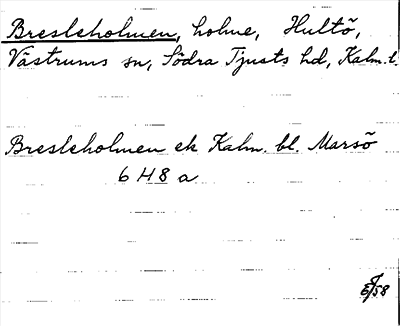 Bresleholmen, holme, Hultö,
Västrums sn, Södra Tjusts hd, Kalm. l.
Bresleholmen ek Kalm. bl. Marsö
6 H 8 a